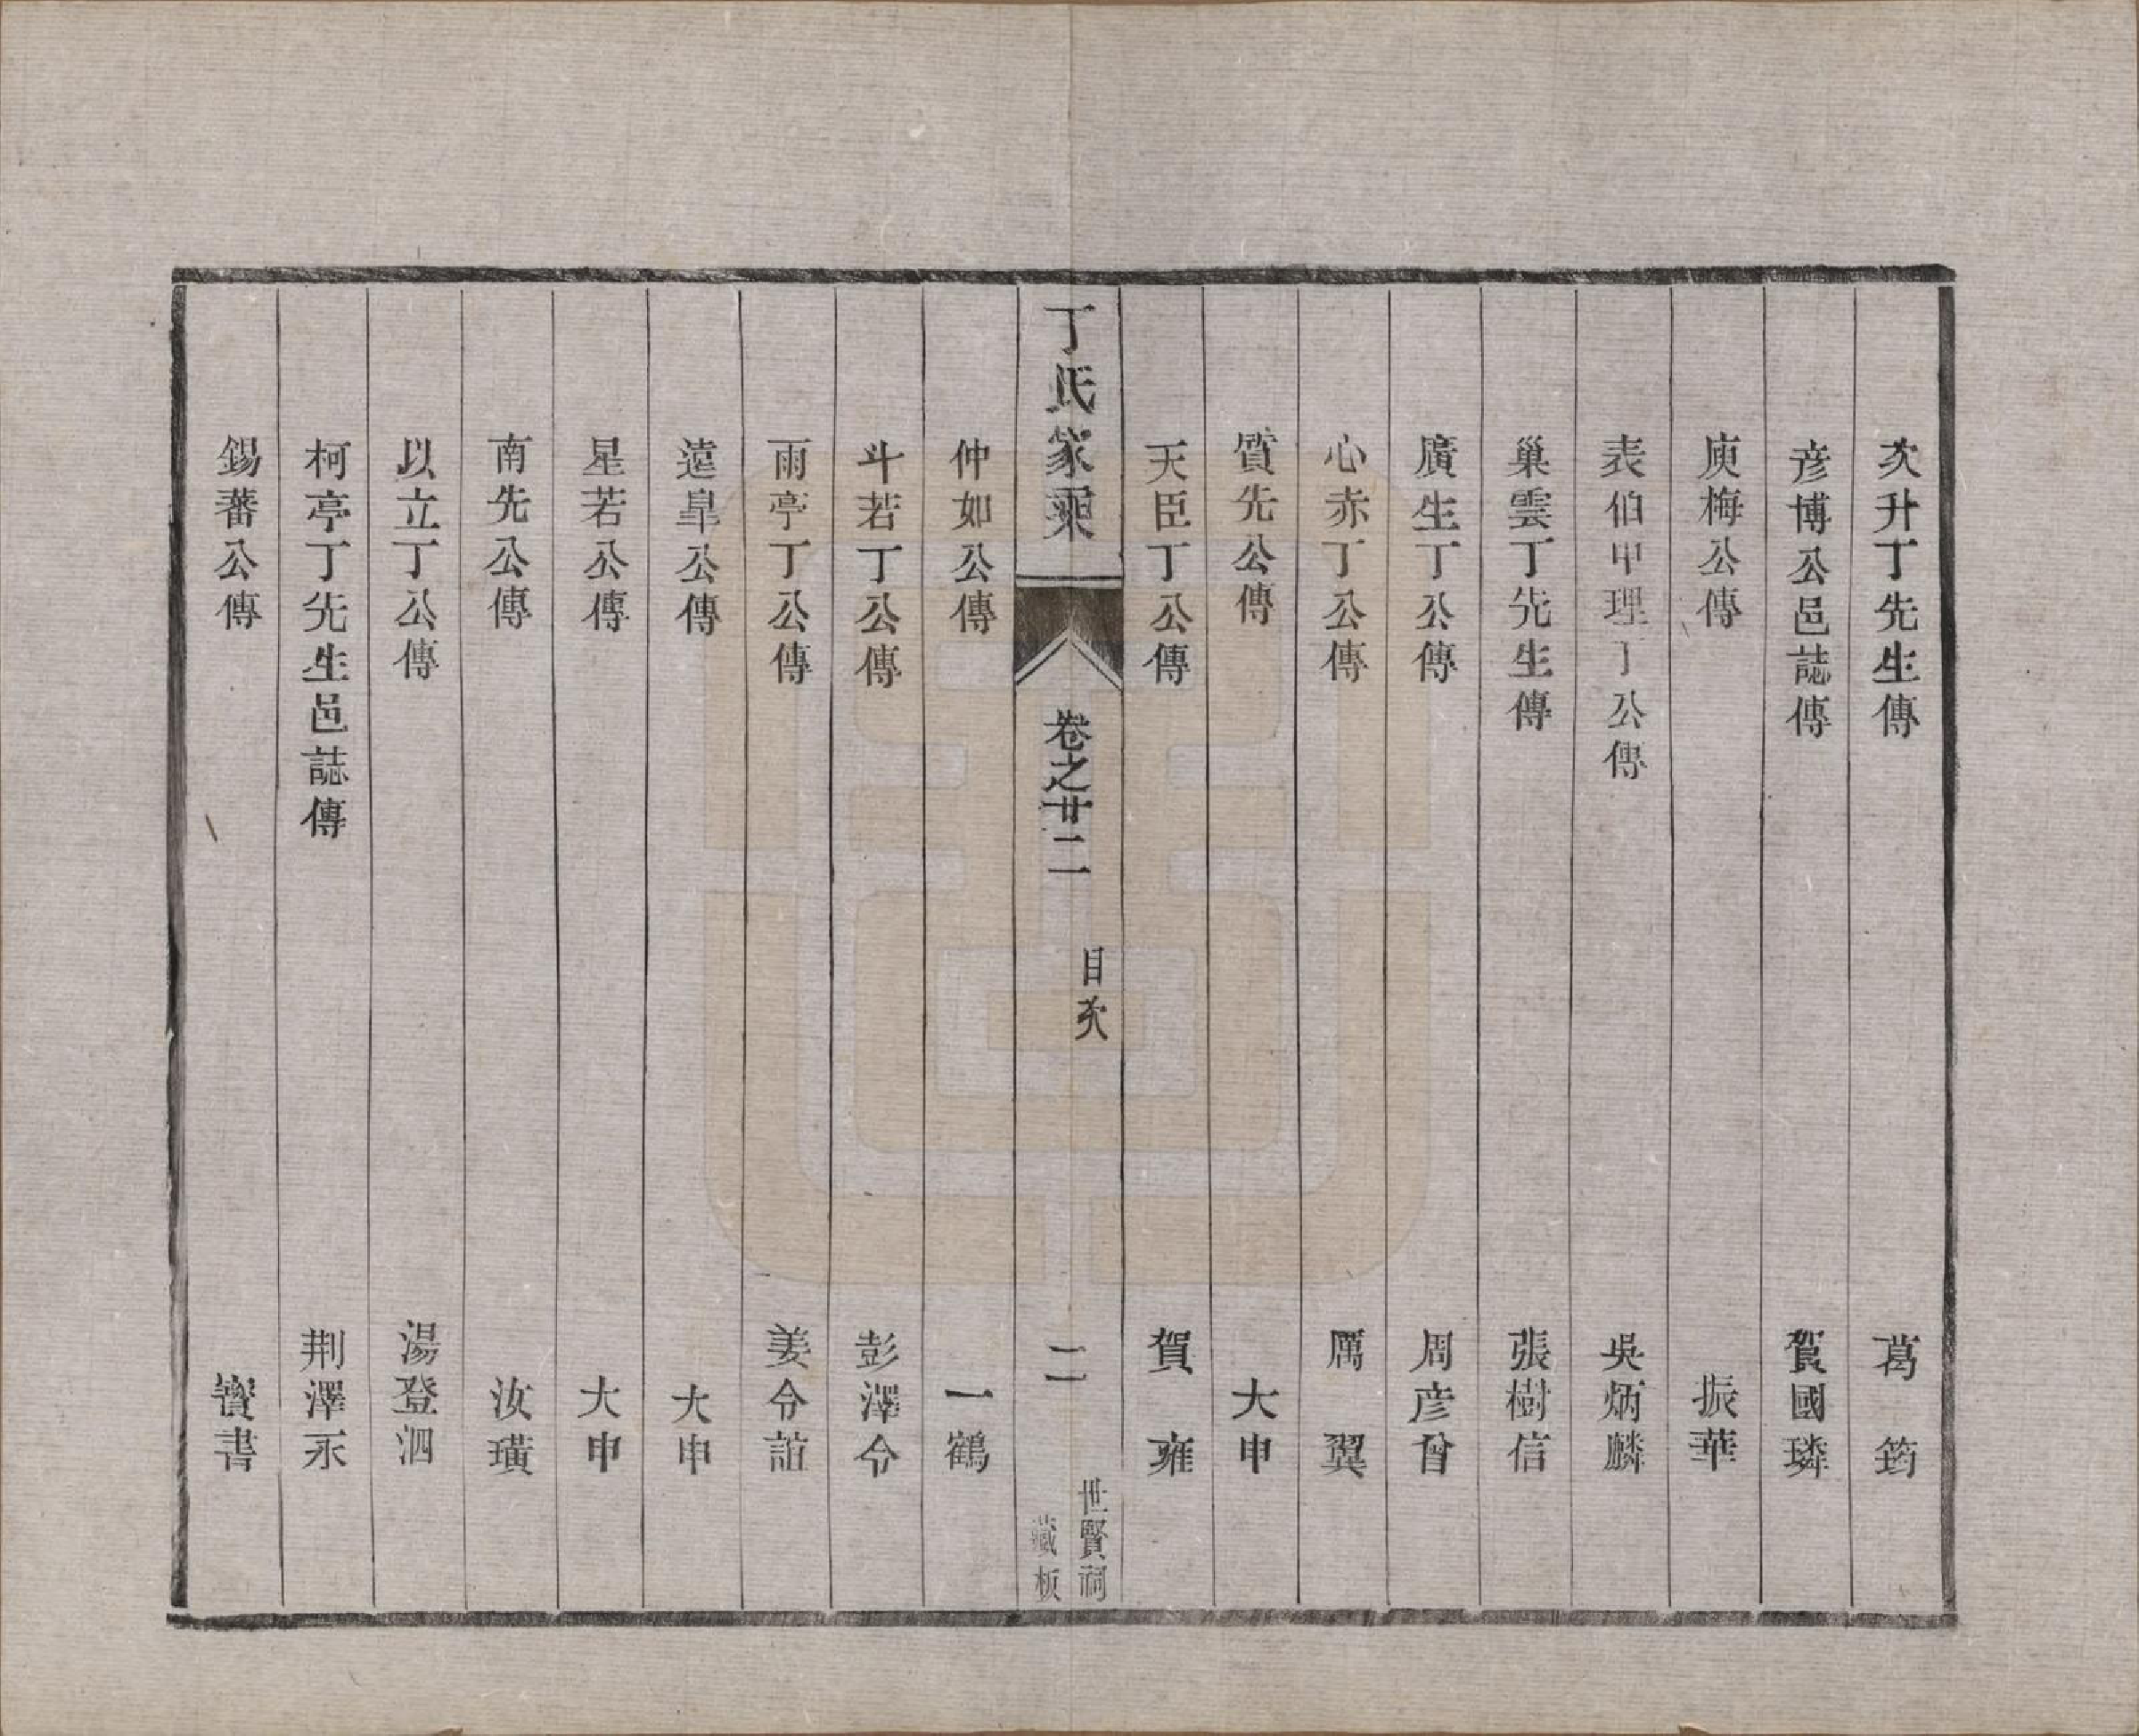 次升丁先生傳　葛筠
彥博公邑誌傳　賀國璘
庾梅公傳　振華
表伯甲理丁公傳　吳炳麟
巢雲丁先生傳　張樹信
廣生丁公傳　周彥曾
心赤丁公傳　厲翼
質先公傳　大申
天臣丁公傳　賀雍
丁氏家乘　卷之廿二　目次　二　世賢祠藏板
仲如公傳　一鶴
斗若丁公傳　彭澤令
雨亭丁公傳　姜令誼
遠臯公傳　大申
星若公傳　大申
南先公傳　汝璜
以立丁公傳　湯登泗
柯亭丁先生邑誌傳　荆澤永
錫蕃公傳　書